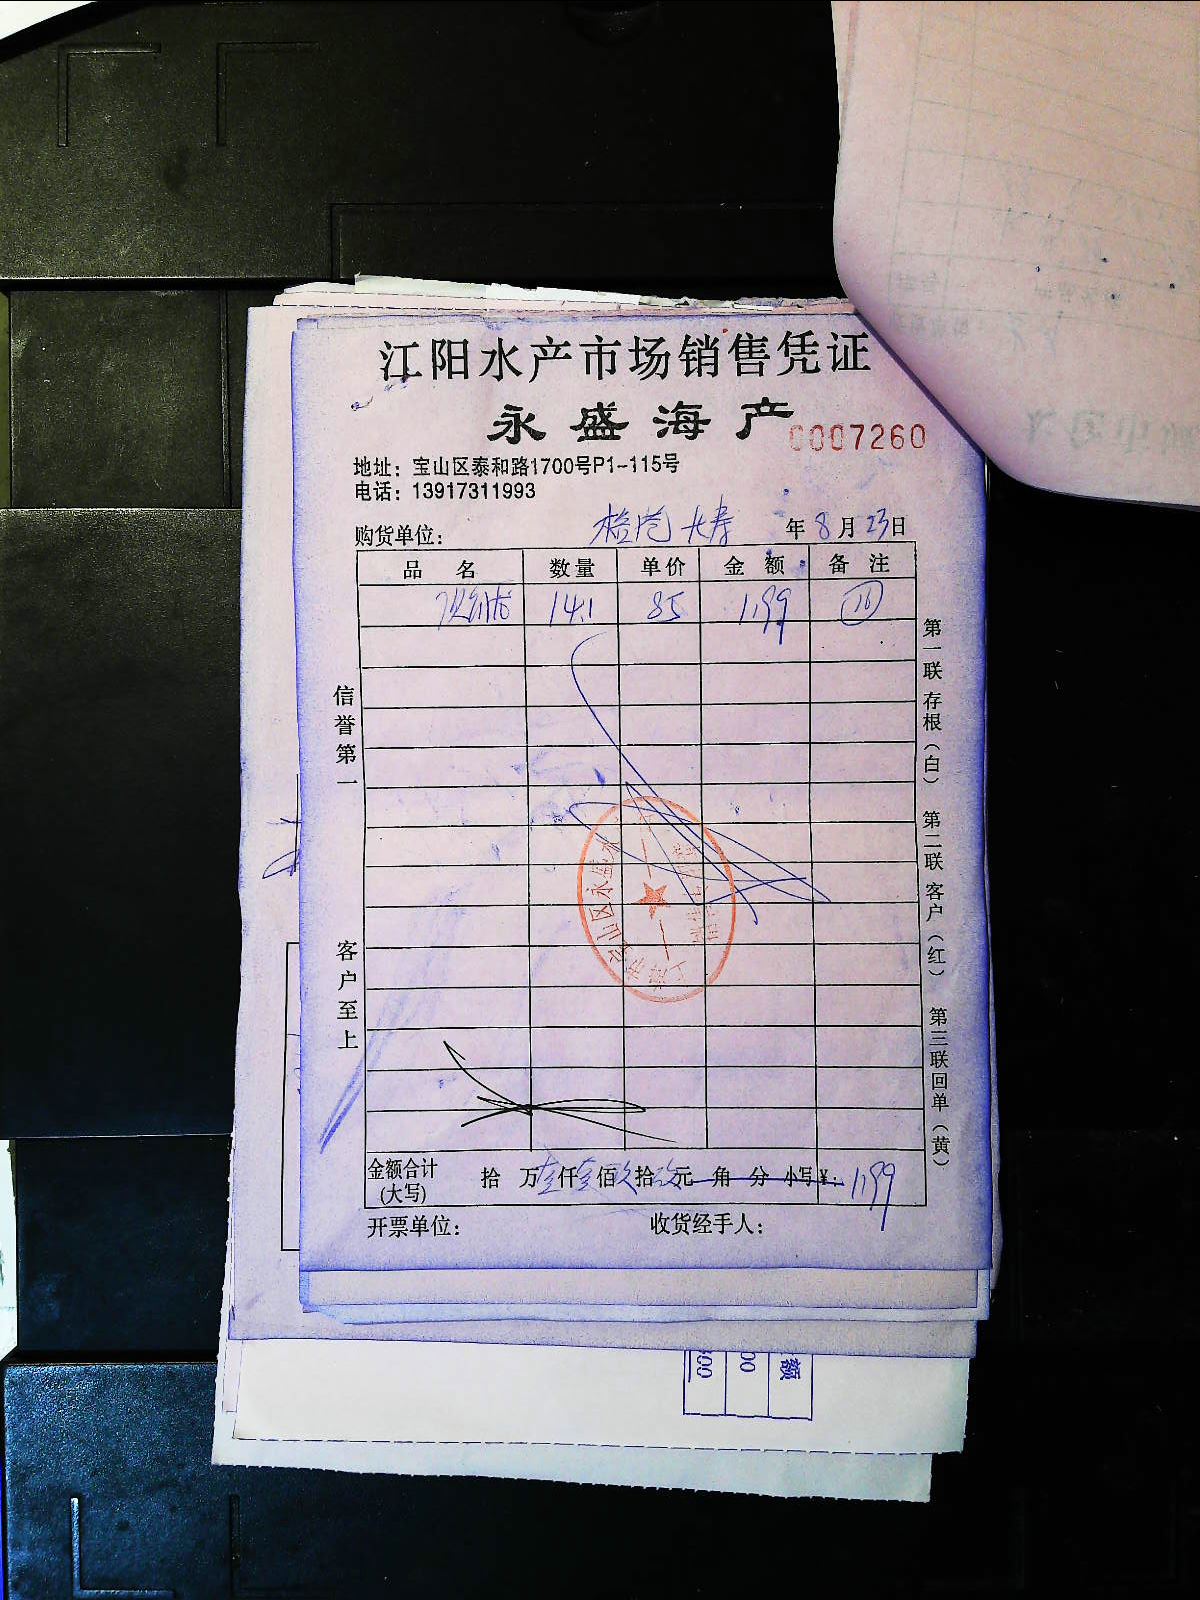 江阳水产市场销售凭证
永盛海产
0007260
地址：宝山区泰和路1700号P1-115号
电话：13917311993
购货单位： 年 8 月 23 日
品 名 数量 单价 金 额 备 注
14.1 85 1199
信誉第一
客户至上
第一联 存根（白） 第二联 客户（红） 第三联 回单（黄）
金额合计
(大写)
拾 万 壹 仟 壹 佰 玖 拾 玖 元 角 分 小写￥：1199
开票单位： 收货经手人：
宝山区永盛水
额
00
300